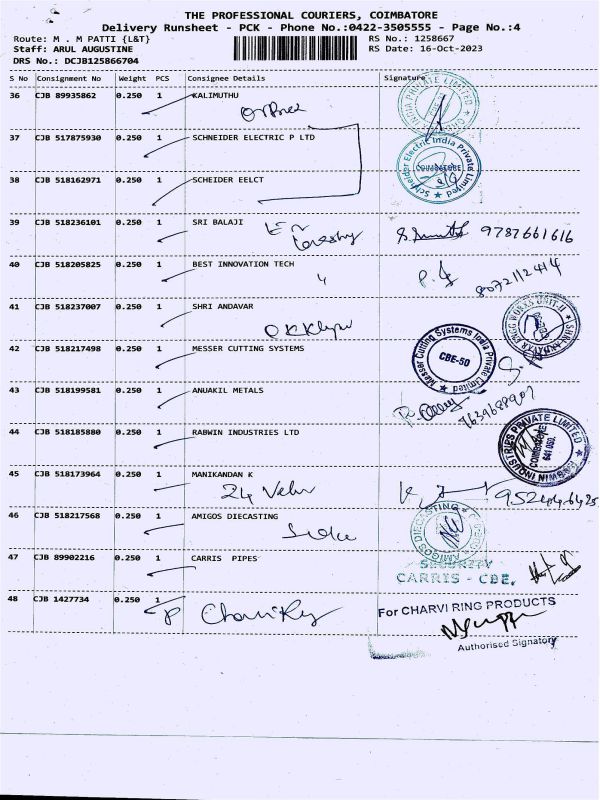 THE PROFESSIONAL COURIERS, COIMBATORE
Delivery Runsheet - PCK - Phone No.:0422-3505555 - Page No.:4
Route: M . M PATTI {L&T}
RS No.: 1258667
Staff: ARUL AUGUSTINE
RS Date: 16-Oct-2023
DRS No.: DCJB125866704
S No Consignment No Weight PCS Consignee Details Signature
36 CJB 89935862 0.250 1 KALIMUTHU
37 CJB 517875930 0.250 1 SCHNEIDER ELECTRIC P LTD
Schneider Electric India Private Limited
COIMBATORE
38 CJB 518162971 0.250 1 SCHEIDER EELCT
39 CJB 518236101 0.250 1 SRI BALAJI
9787661616
40 CJB 518205825 0.250 1 BEST INNOVATION TECH
8072112414
41 CJB 518237007 0.250 1 SHRI ANDAVAR
42 CJB 518217498 0.250 1 MESSER CUTTING SYSTEMS
Messer Cutting Systems India Private Limited
CBE-50
43 CJB 518199581 0.250 1 ANUAKIL METALS
44 CJB 518185880 0.250 1 RABWIN INDUSTRIES LTD
RABWIN INDUSTRIES PRIVATE LIMITED
COIMBATORE
641 050.
45 CJB 518173964 0.250 1 MANIKANDAN K
46 CJB 518217568 0.250 1 AMIGOS DIECASTING
AMIGOS DIECASTING
47 CJB 89902216 0.250 1 CARRIS PIPES
SECURITY
CARRIS - CBE.
48 CJB 1427734 0.250 1
For CHARVI RING PRODUCTS
Authorised Signatory